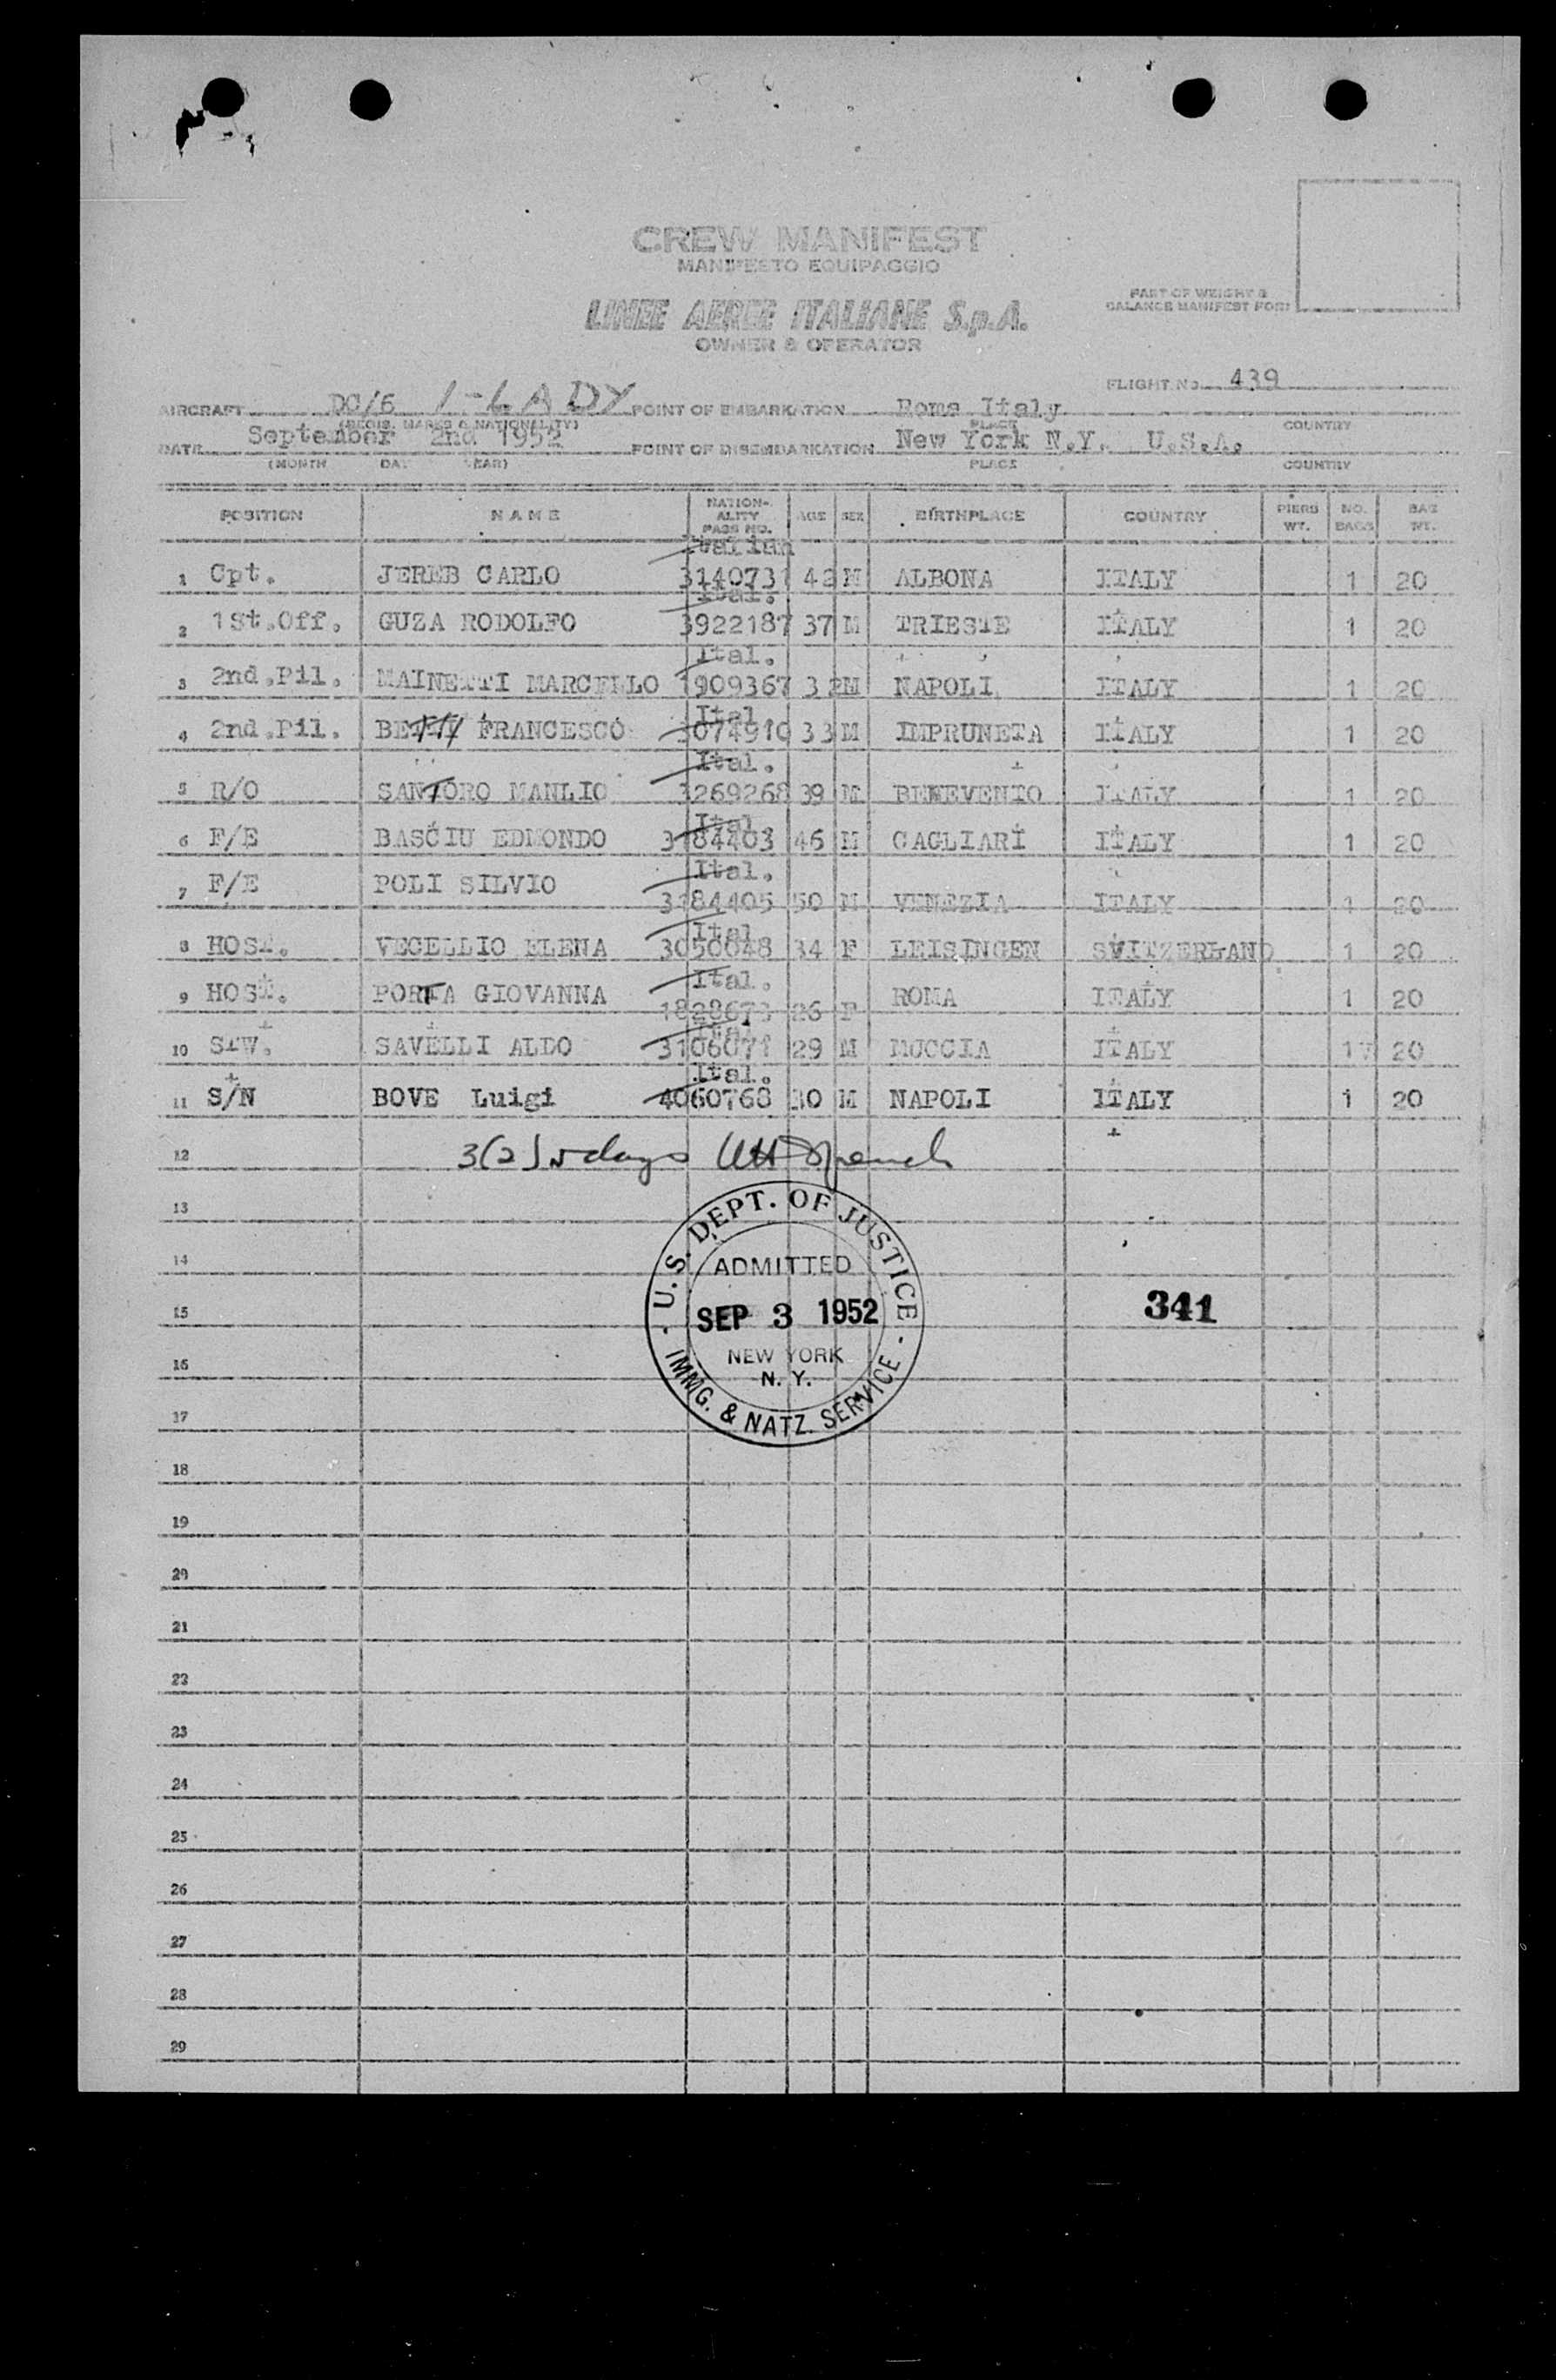 CREW MANIFEST
MANIFESTO EQUIPAGGIO
PART OF WEIGHT &
BALANCE MANIFEST FORM
LINEE AEREE ITALIANE S.p.A.
OWNER & OPERATOR
FLIGHT No. 439
AIRCRAFT DC/6 I-LADY POINT OF EMBARKATION Roma Italy
(REGIS. MARKS & NATIONALITY) PLACE COUNTRY
DATE September 2nd 1952 POINT OF DISEMBARKATION New York N.Y. U.S.A.
(MONTH DAY YEAR) PLACE COUNTRY
POSITION NAME NATION-ALITY PASS NO. AGE SEX BIRTHPLACE COUNTRY PIERS WT. NO. BAGS BAG WT.
Italian
1 Cpt. JEREB CARLO 3140731 42 M ALBONA ITALY 1 20
Ital.
2 1St.Off. GUZA RODOLFO 3922187 37 M TRIESTE ITALY 1 20
Ital.
3 2nd.Pil. MAINETTI MARCELLO 1909367 32 M NAPOLI ITALY 1 20
Ital.
4 2nd.Pil. FRANCESCO 3074910 33 M IMPRUNETA ITALY 1 20
Ital.
5 R/O SANTORO MANLIO 3269268 39 M BENEVENTO ITALY 1 20
Ital.
6 F/E BASCIU EDMONDO 3184403 46 M CAGLIARI ITALY 1 20
Ital.
7 F/E POLI SILVIO 3184405 50 M VENEZIA ITALY 1 20
Ital.
8 HOST. VECELLIO ELENA 3050048 34 F LEISINGEN SWITZERLAND 1 20
Ital.
9 HOST. PORTA GIOVANNA 1828673 26 F ROMA ITALY 1 20
Ital.
10 STW. SAVELLI ALDO 3106071 29 M MUCCIA ITALY 1 20
Ital.
11 S/N BOVE Luigi 4060768 30 M NAPOLI ITALY 1 20
12 3(2) days
13
14
15
16
17
18
19
20
21
22
23
24
25
26
27
28
29
U.S. DEPT. OF JUSTICE
ADMITTED
SEP 3 1952
NEW YORK
N. Y.
IMMG. & NATZ. SERVICE
341